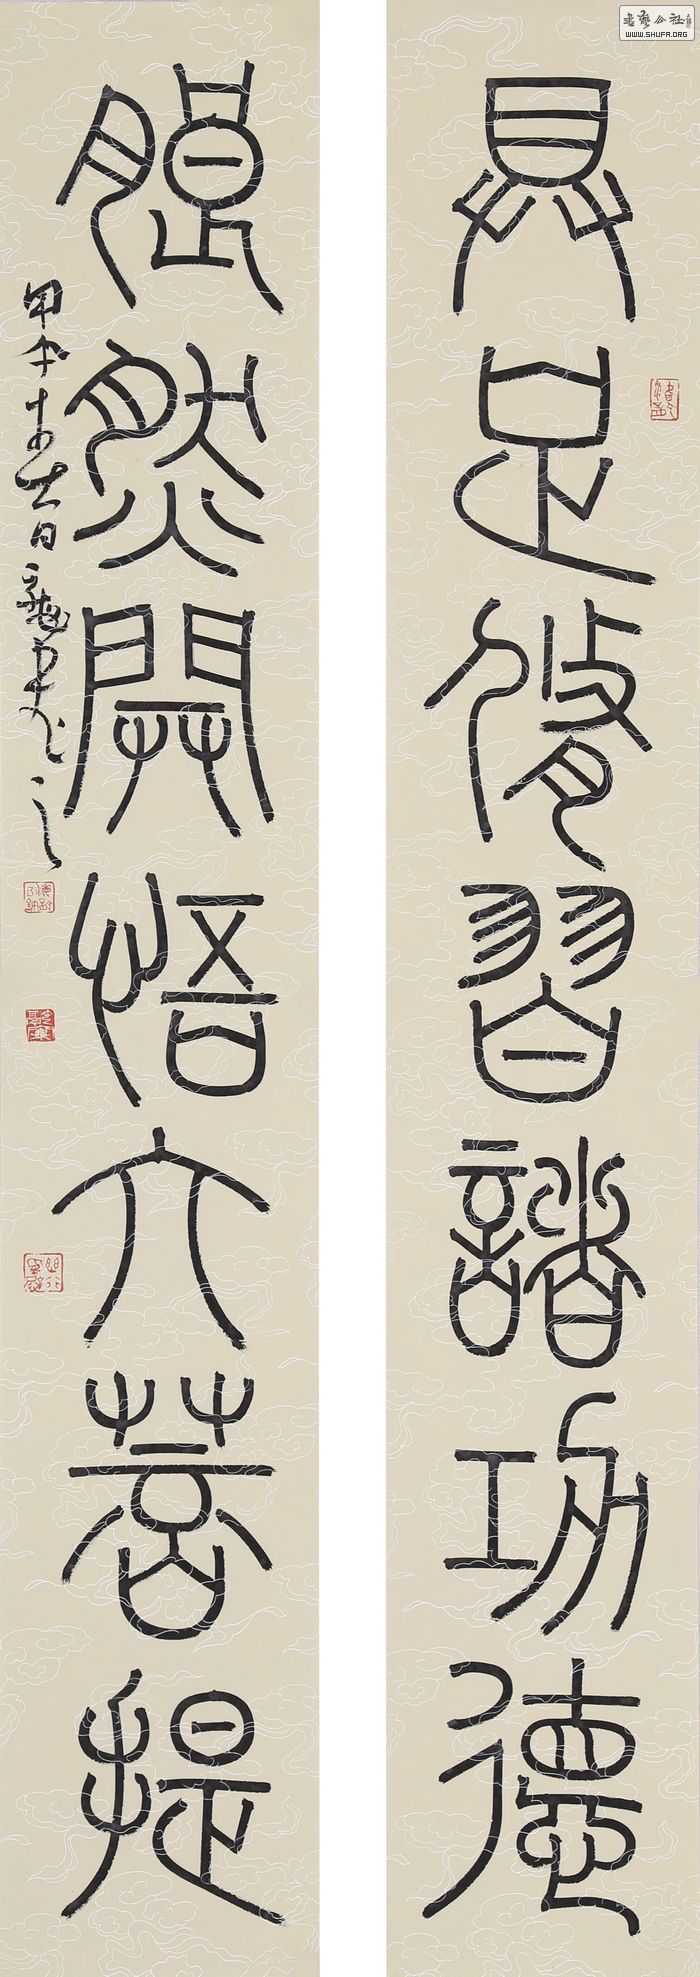 書藝公社
WWW.SHUFA.ORG
具足修習諸功德
朗然開悟大菩提
甲午 吉日